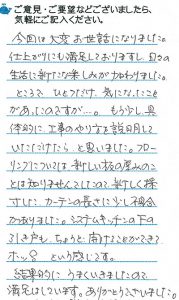 ご意見・ご要望などございましたら、
気軽にご記入ください。
今回は大変お世話になりました。
仕上がりにも満足しておりますし、日々の
生活に新たな楽しみが加わりました。
ところで、ひとつだけ、気になったこと
があったのですが…。もう少し具
体的に、工事のやり方を説明して
いただけたら、と思いました。フロー
リングについては、新しい板の厚みのこ
とは知りませんでしたので、新しく採
寸した カーテンの長さに少し不都合
がありました。システムキッチンの下の
引き戸も、ちょうど、開けることができて
ホッ という感じです。
結果的に、うまくいきましたので
満足はしています。ありがとうございました。